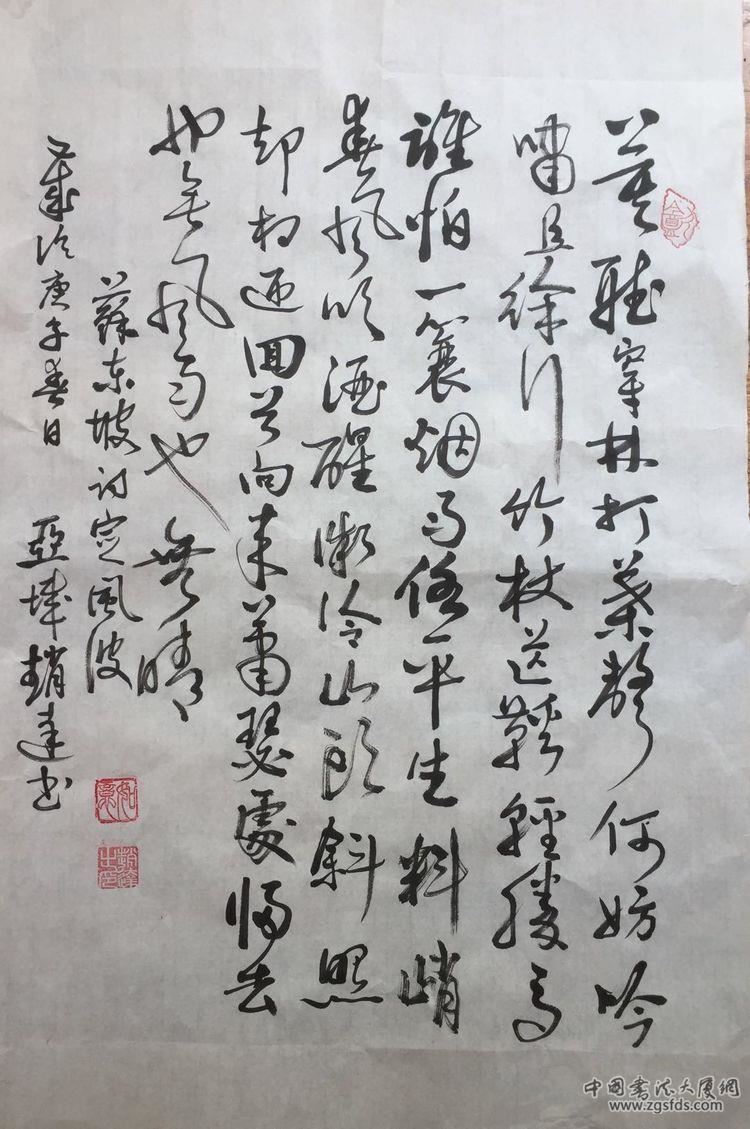 莫聽穿林打葉聲何妨吟
嘯且徐行竹杖芒鞋輕勝馬
誰怕一蓑烟雨任平生料峭
春風吹酒醒微冷山頭斜照
却相迎囬首向来蕭瑟處歸去
也無風雨也無晴
蘇東坡詞定風波
歲次庚子春日 亞 趙達书
趙達之印
中国書法大厦網
www.zgsfds.com